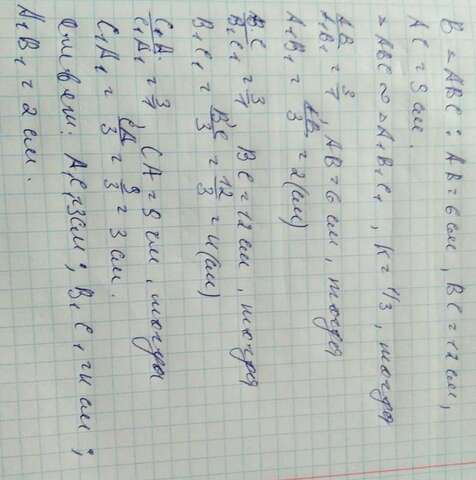 В △ABC: AB = 6 см, BC = 12 см,
AC = 9 см.
△ABC ∾ △A₁B₁C₁, K = 1/3, тогда
AB/A₁B₁ = 3/1 AB = 6 см, тогда
A₁B₁ = AB/3 = 2(см)
BC/B₁C₁ = 3/1 BC = 12 см, тогда
B₁C₁ = BC/3 = 12/3 = 4(см)
C₁A₁ = 3/1 CA = 9 см, тогда
C₁A₁ = CA/3 = 9/3 = 3 см.
Ответ: A₁C₁ = 3 см; B₁C₁ = 4 см;
A₁B₁ = 2 см.